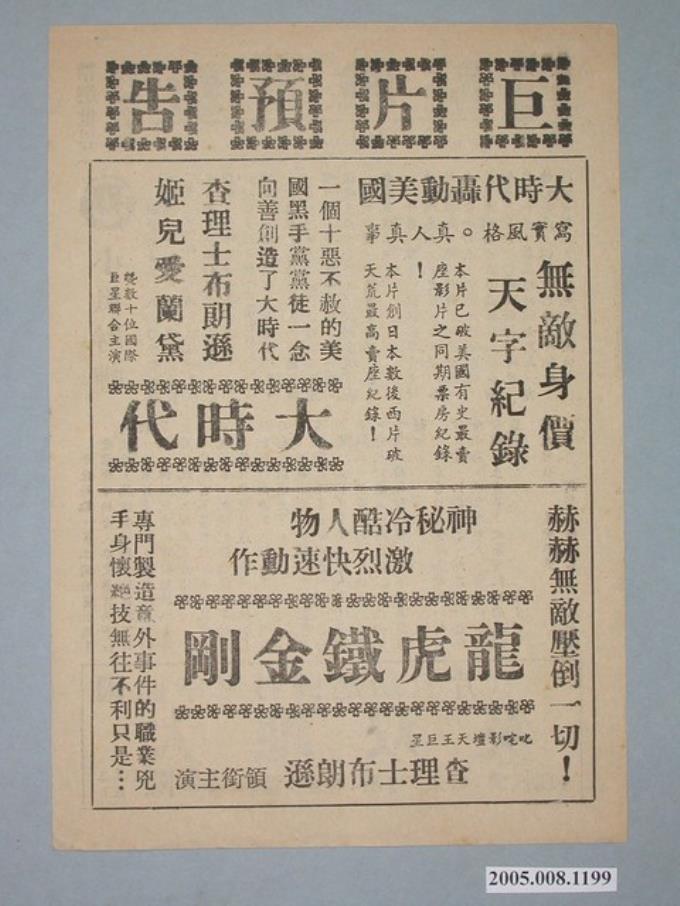 巨片預告
大時代轟動美國
寫實風格。真人真事！
無敵身價
天字紀錄
本片已破美國有史最賣
座影片之同期票房紀錄
本片創日本數後西片破
天荒最高賣座紀錄！
一個十惡不赦的美
國黑手黨黨徒一念
向善創造了大時代
查理士布朗遜
姬兒愛蘭黛
暨數十位國際
巨星聯合主演
大時代
赫赫無敵壓倒一切！
神秘冷酷人物
激烈快速動作
龍虎鐵金剛
叱咤影壇天王巨星
查理士布朗遜 領銜主演
專門製造意外事件的職業兇
手身懷絕技無往不利只是…
2005.008.1199